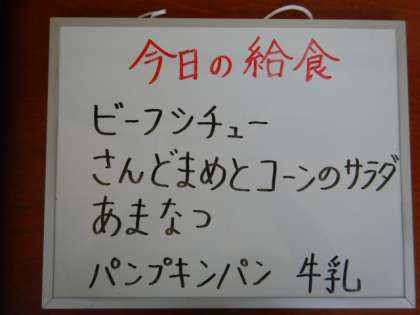 今日の給食
ビーフシチュー
さんどまめとコーンのサラダ
あまなつ
パンプキンパン 牛乳